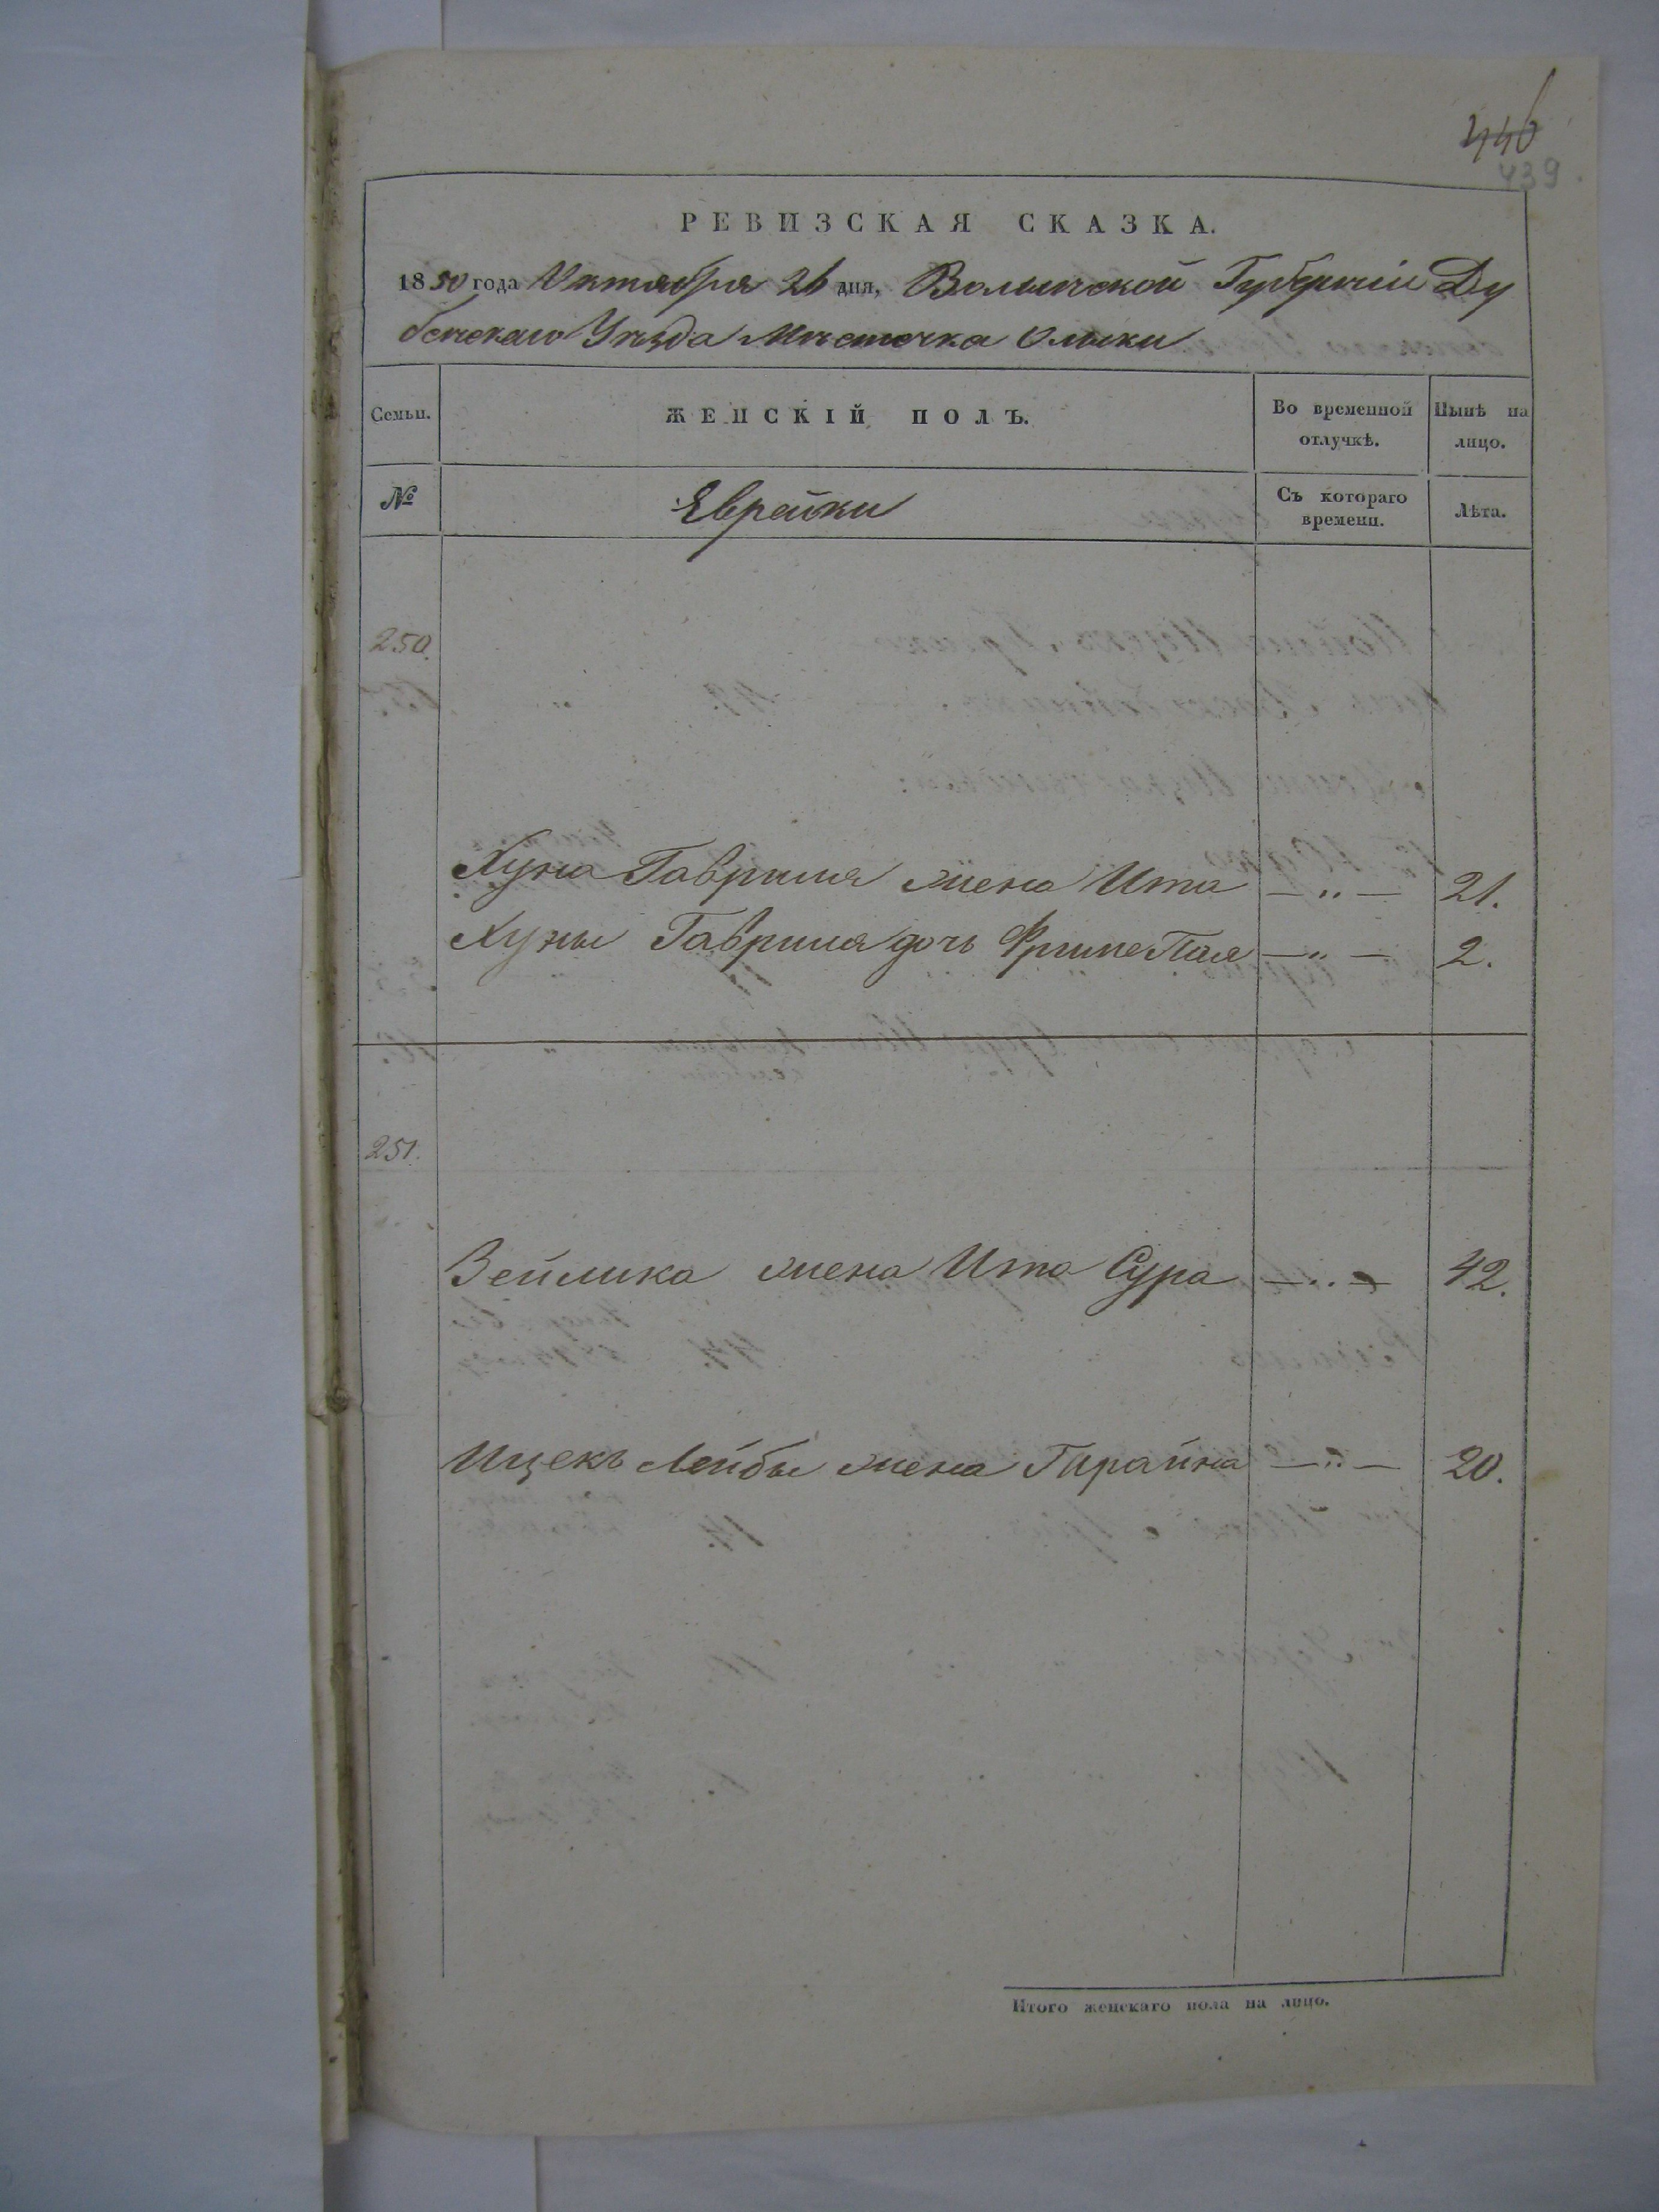 446
439
РЕВИЗСКАЯ СКАЗКА.
1850 года Октября 26 дня, Волынской Губерніи Ду
бенскаго Уѣзда Мѣстечка Олыки
Семьи.
ЖЕНСКІЙ ПОЛЪ.
Во временной отлучкѣ.
Нынѣ на лицо.
№
Еврейки
Съ котораго времени.
Лѣта.
250.
Хуна Гаврииля жена Ита — „ — 21.
Хуны Гаврииля дочь — „ — 2.
251.
Зейлика жена Ита Сура — „ — 42.
Ицекъ Лейбы жена — „ — 20.
Итого женскаго пола на лицо.